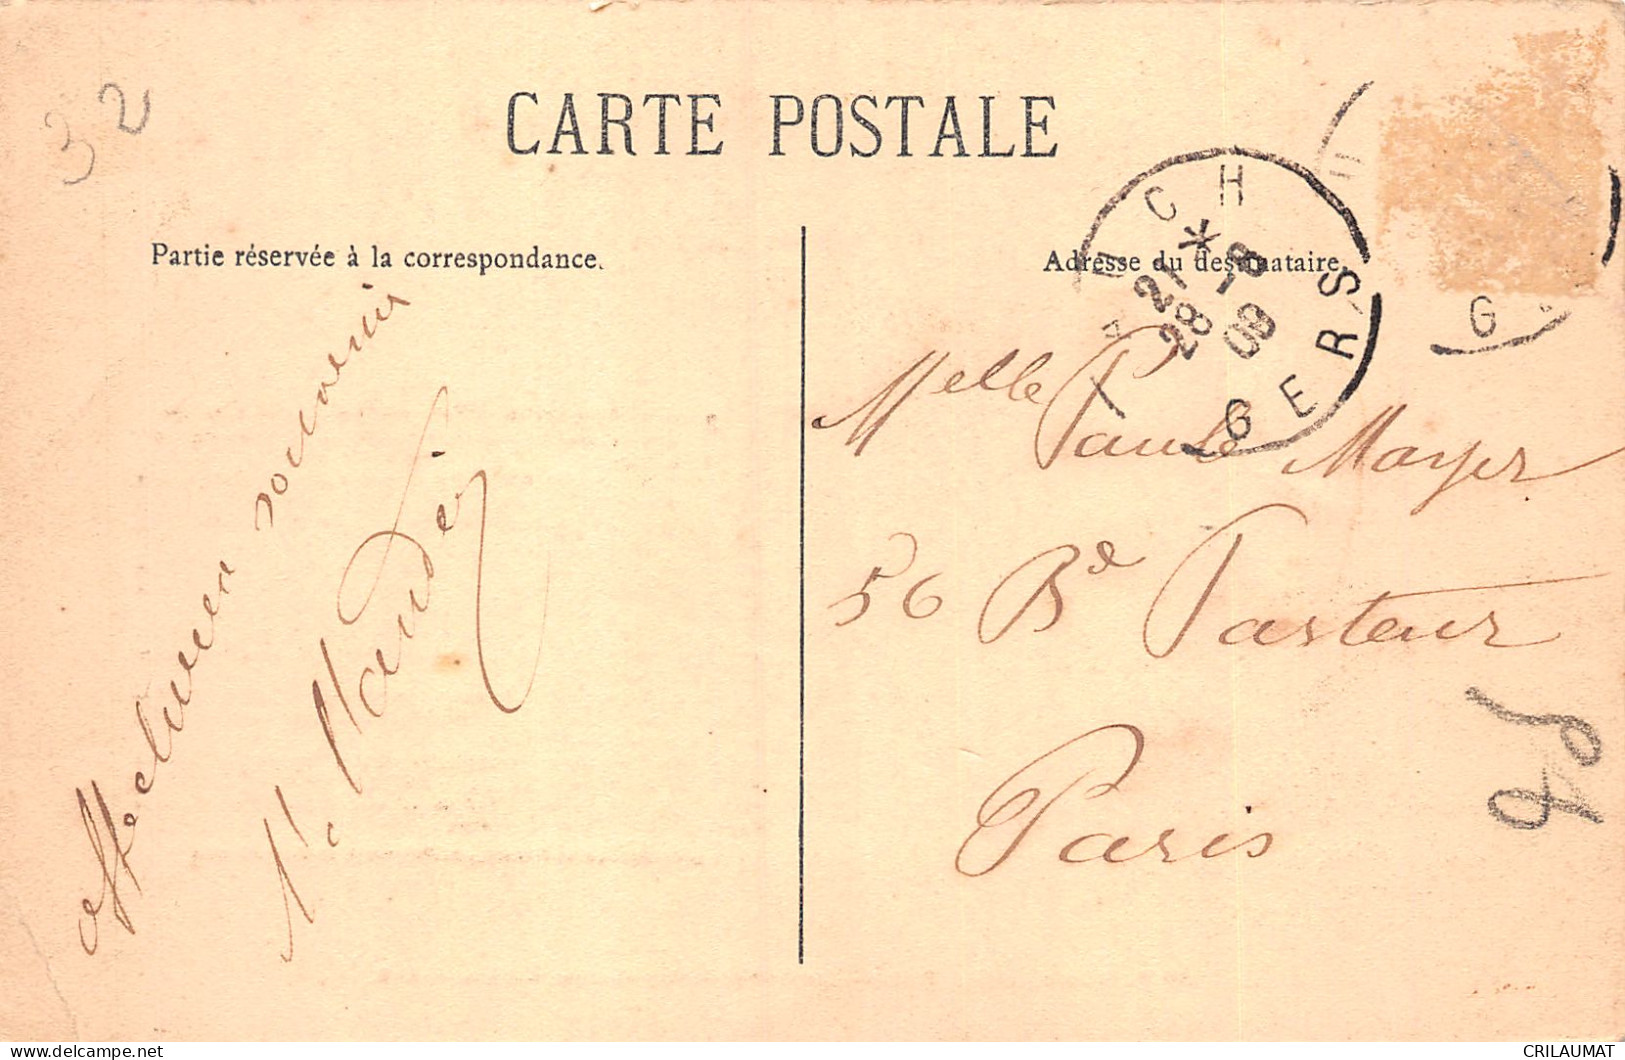 32
CARTE POSTALE
Partie réservée à la correspondance.
Adresse du destinataire.
AUCH
*
21
28 -8
09
GERS
G
affectueux souvenir
Melle Paule Mayer
56 Bd Pasteur
Paris
CRILAUMAT